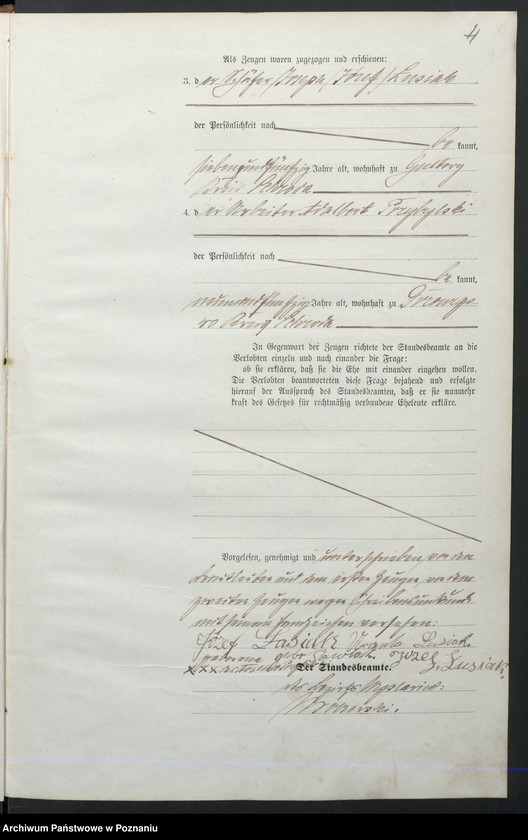 4
Als Zeugen waren zugezogen und erschienen:
3. der Schäfer Joseph /Józef/ Lusiak
der Persönlichkeit nach
be kannt,
siebenundfünfzig Jahre alt, wohnhaft zu
Kreis Schroda
4. der Arbeiter Adalbert Przybylski
der Persönlichkeit nach
be kannt,
neunundfünfzig Jahre alt, wohnhaft zu
Kreis Schroda
In Gegenwart der Zeugen richtete der Standesbeamte an die
Verlobten einzeln und nach einander die Frage:
ob sie erklären, daß sie die Ehe mit einander eingehen wollen.
Die Verlobten beantworteten diese Frage bejahend und erfolgte
hierauf der Ausspruch des Standesbeamten, daß er sie nunmehr
kraft des Gesetzes für rechtmäßig verbundene Eheleute erkläre.
Vorgelesen, genehmigt und unterschrieben, von den
Eheleuten und dem ersten Zeugen, von dem
zweiten Zeugen wegen Schreibensunkunde
mit seinem Handzeichen versehen:
Józef Lusiak
Lusiak
Józef Lusiak
xxx
Der Standesbeamte.
Archiwum Państwowe w Poznaniu